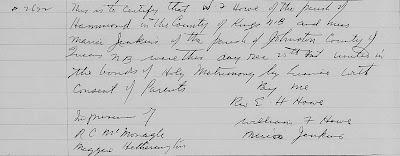 2692 This is to Certify that W F Howe of the parish of
Hammond in the County of Kings NB and Miss
Marria Jenkins of the parish of Johnston County of
Queens NB were this day Dec 25th united in
the bonds of Holy Matrimony by License with
Consent of Parents By Me
Rev E H Howe
In presence of William F Howe
R C McMonagle Jenkins
Maggie Hetherington